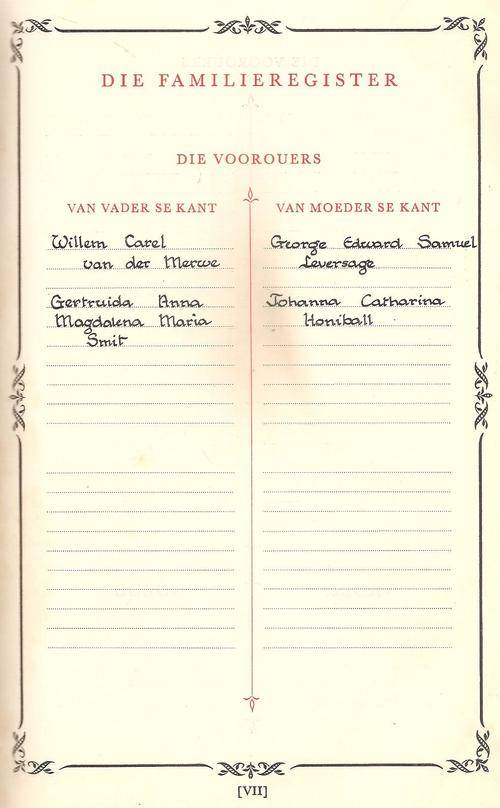 DIE FAMILIEREGISTER
DIE VOOROUERS
VAN VADER SE KANT
Willem Carel
van der Merwe
Gertruida Anna
Magdalena Maria
Smit
VAN MOEDER SE KANT
George Edward Samuel
Leversage
Johanna Catharina
Honiball
[VII]